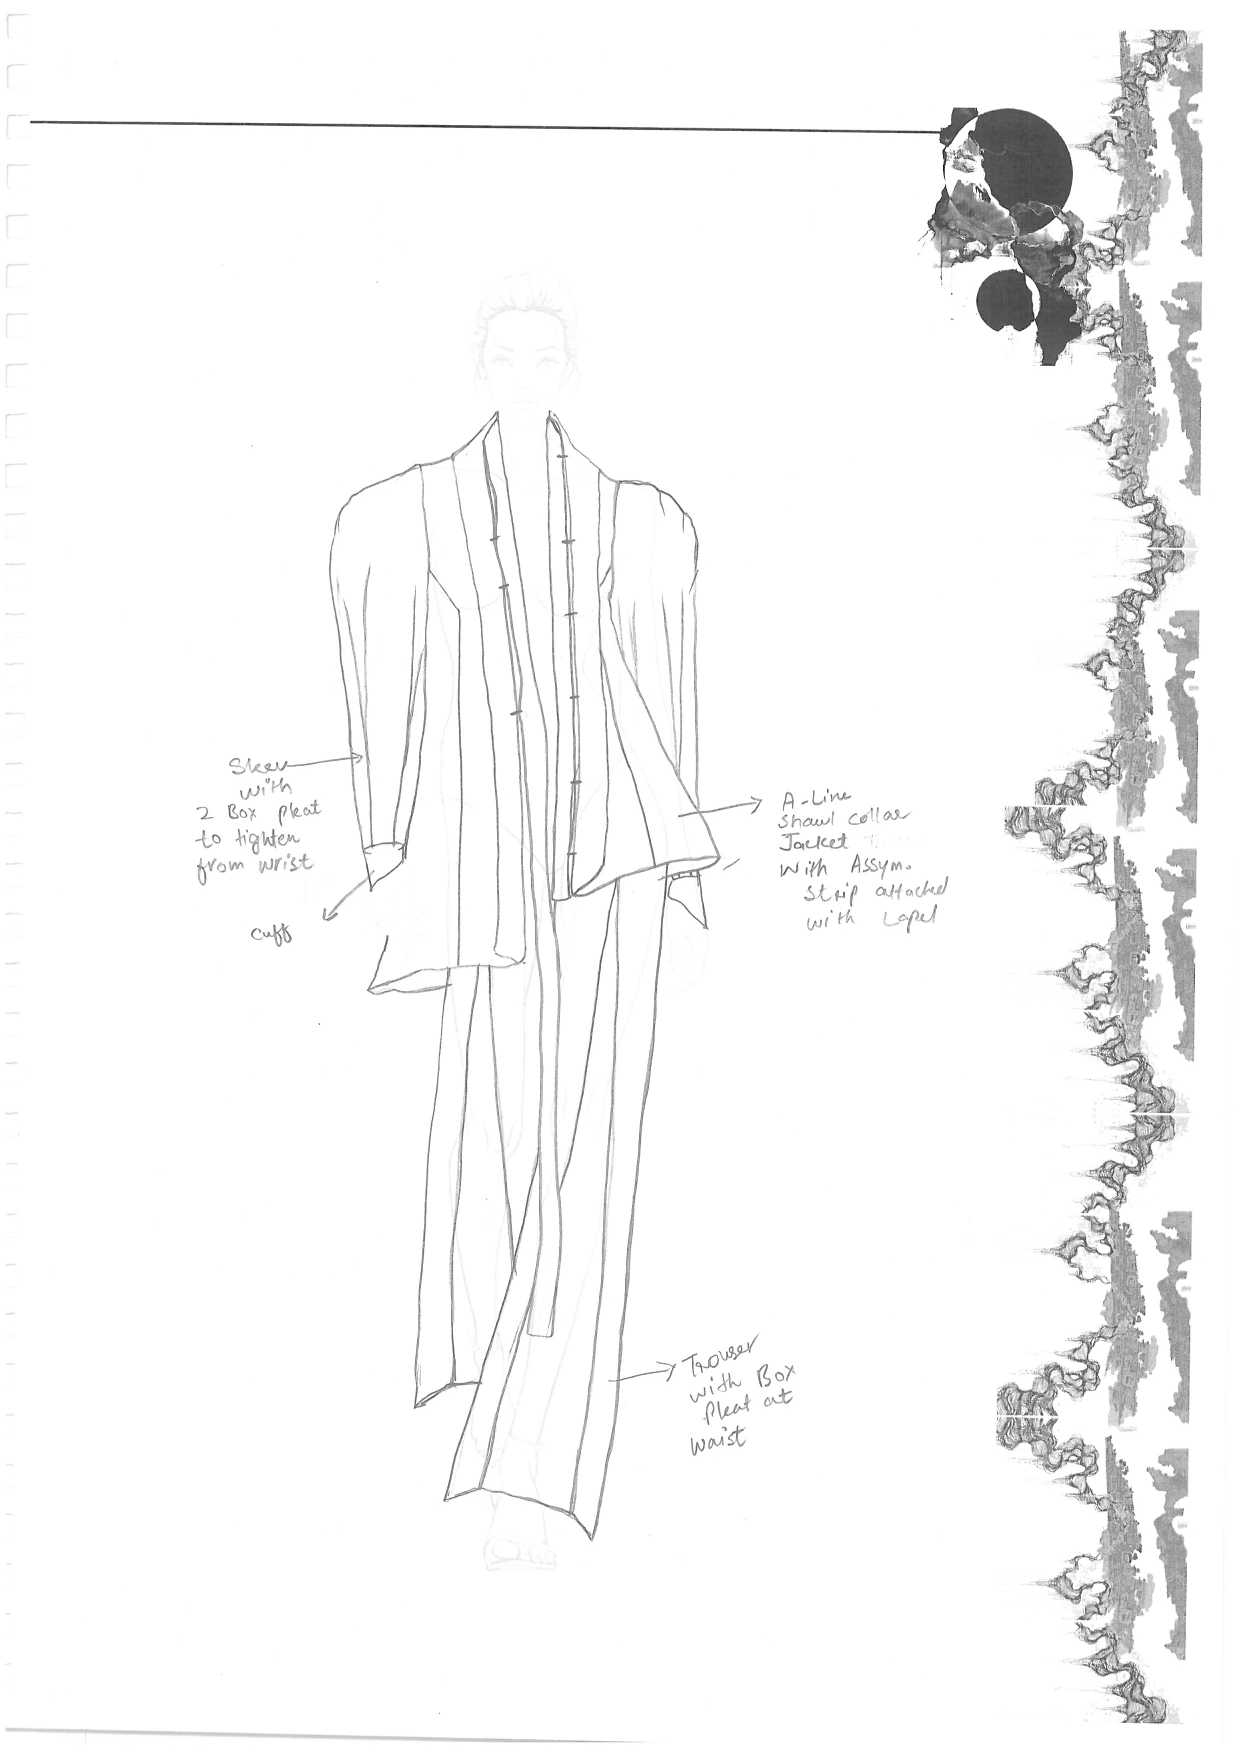 with
2 Box pleat
to tighten
from wrist
cuff
A-Line
Shawl collar
Jacket
with Assym.
Strip attached
with Lapel
Trouser
with Box
Pleat at
waist